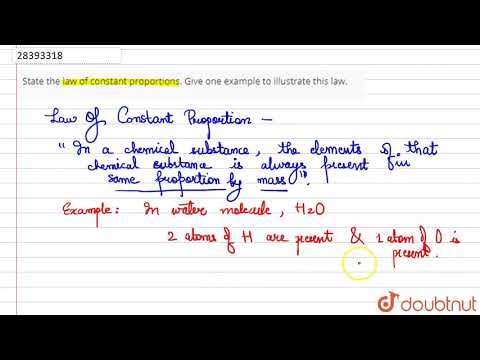 28393318
State the law of constant proportions. Give one example to illustrate this law.
Law Of Constant Proportion –
"In a chemical substance, the elements of that
chemical substance is always present in
same proportion by mass".
Example: In water molecule, H2O
2 atoms of H are present & 1 atom of O is
present.
doubtnut